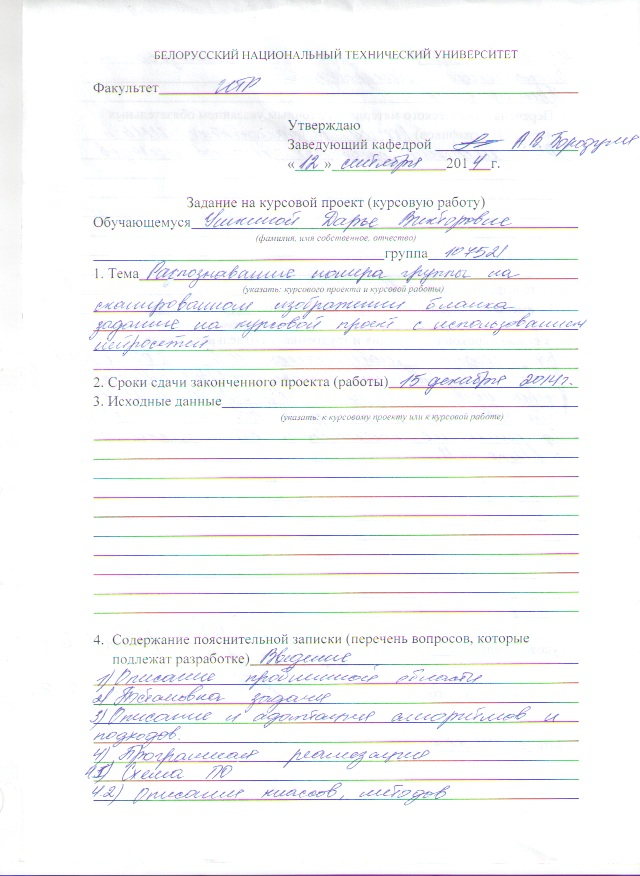 БЕЛОРУССКИЙ НАЦИОНАЛЬНЫЙ ТЕХНИЧЕСКИЙ УНИВЕРСИТЕТ
Факультет
Утверждаю
Заведующий кафедрой А.В. Бородуля
« 12 » сентября 2014 г.
Задание на курсовой проект (курсовую работу)
Обучающемуся Дарье Викторовне
(фамилия, имя собственное, отчество)
группа 107521
1. Тема Распознавание номера группы на
(указать: курсового проекта и курсовой работы)
сканированном изображении бланка
задание на курсовой проект с использованием
нейросетей
2. Сроки сдачи законченного проекта (работы) 15 декабря 2014г.
3. Исходные данные
(указать: к курсовому проекту или к курсовой работе)
4. Содержание пояснительной записки (перечень вопросов, которые
подлежат разработке) Введение
1) Описание проблемной области
2) Постановка задачи
3) Описание и адаптация алгоритмов и
подходов.
4) Программная реализация
4.1) Схема ПО
4.2) Описание классов, методов